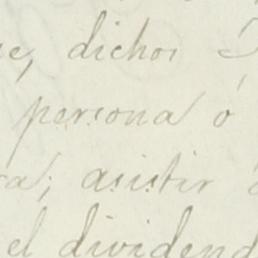 e, dichos
persona ó
ra; asistir
el dividend